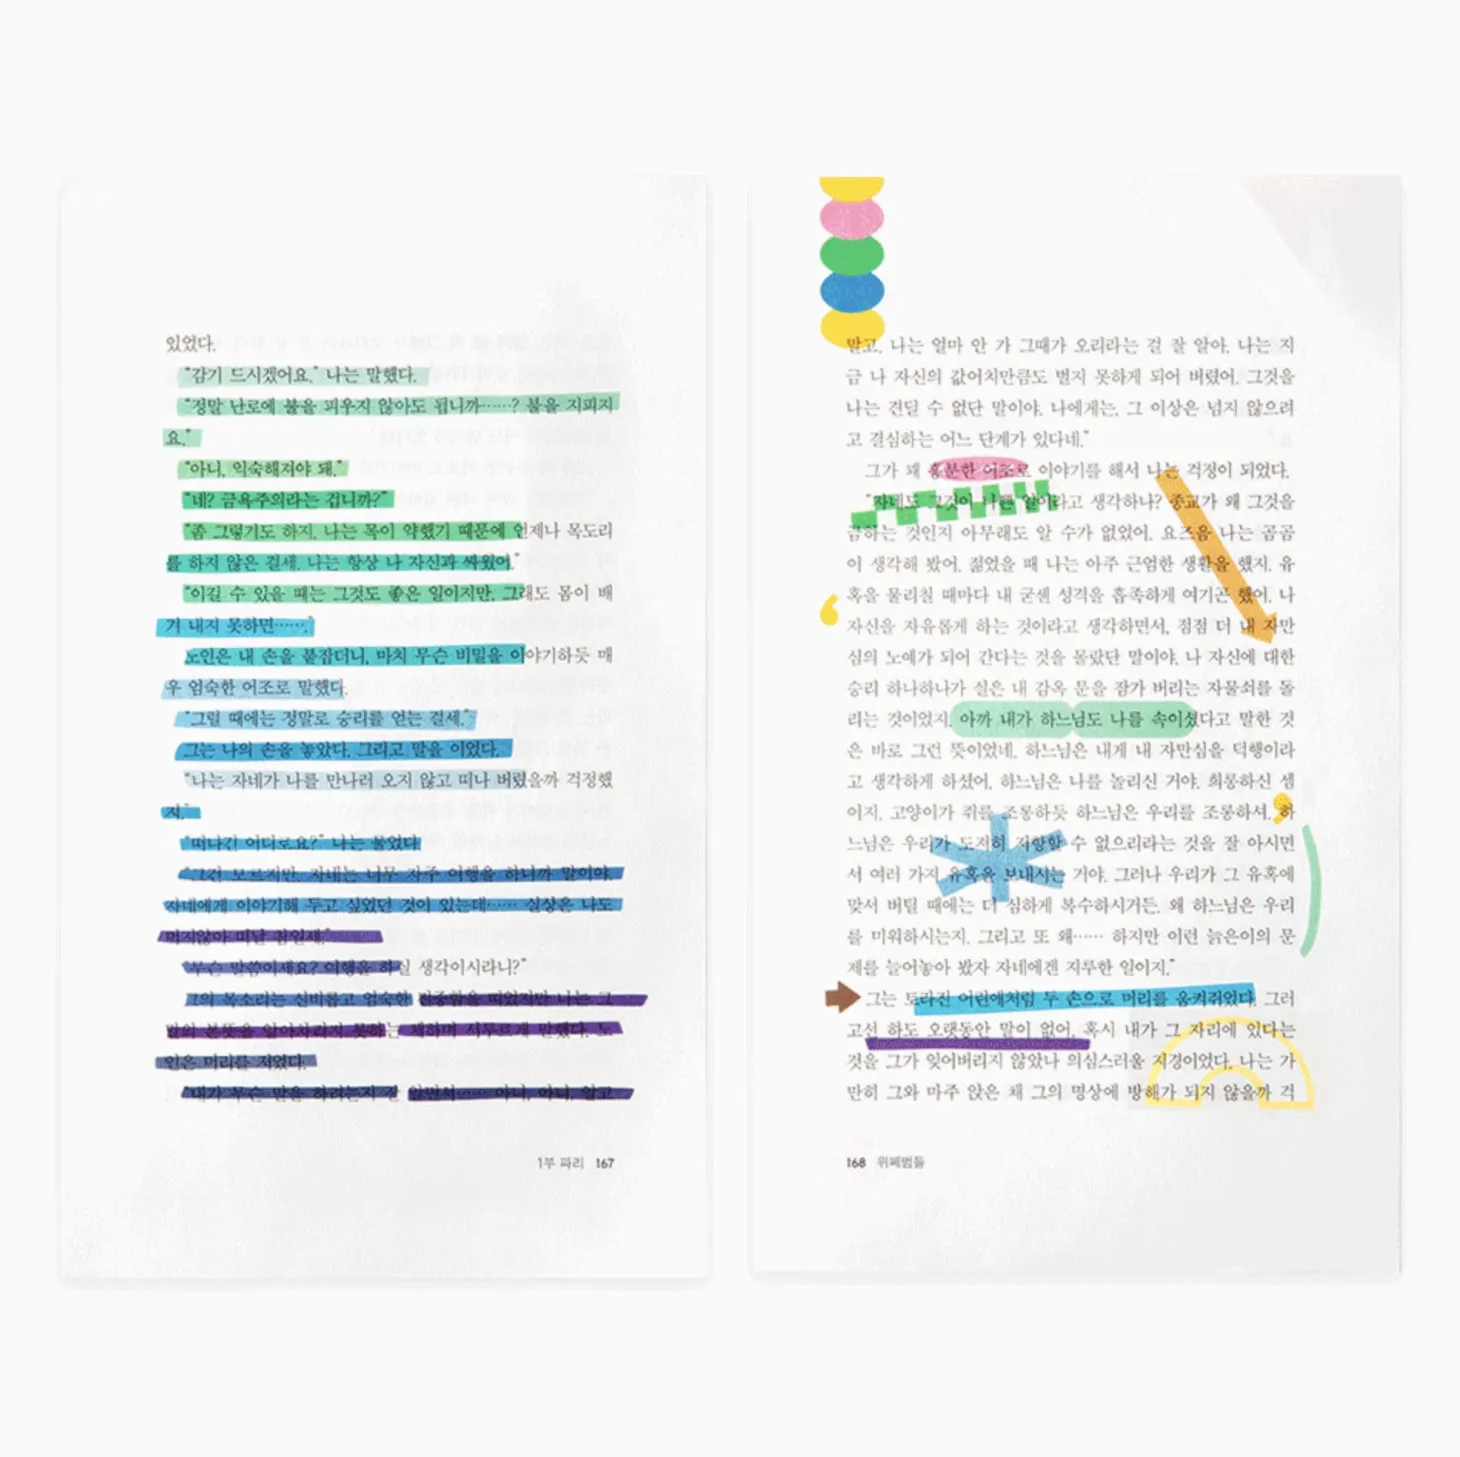 있었다.
“감기 드시겠어요.” 나는 말했다.
“정말 난로에 불을 피우지 않아도 됩니까……? 불을 지피지
요.”
“아니, 익숙해져야 돼.”
“네? 금욕주의라는 겁니까?”
“좀 그렇기도 하지. 나는 목이 약했기 때문에 언제나 목도리
를 하지 않은 걸세. 나는 항상 나 자신과 싸웠어.”
“이길 수 있을 때는 그것도 좋은 일이지만, 그래도 몸이 배
겨 내지 못하면…….”
노인은 내 손을 붙잡더니, 마치 무슨 비밀을 이야기하듯 매
우 엄숙한 어조로 말했다.
“그럴 때에는 정말로 승리를 얻는 걸세.”
그는 나의 손을 놓았다. 그리고 말을 이었다.
“나는 자네가 나를 만나러 오지 않고 떠나 버렸을까 걱정했
지.”
“떠나긴 어디로요?” 나는 물었다
“그건 모르지만. 자네는 너무 자주 여행을 하니까 말이야.
자네에게 이야기해 두고 싶었던 것이 있는데…… 실상은 나도
머지않아 떠날 참일세.”
“무슨 말씀이세요? 여행을 하실 생각이시라니?”
그의 목소리는 신비롭고 엄숙한 진중함을 띠었지만 나는 그
말의 본뜻을 알아차리지 못하는 체하며 서투르게 말했다. 노
인은 머리를 저었다.
“내가 무슨 말을 하려는지 잘 알면서…… 아니, 아니, 알고
1부 파리 167
말고. 나는 얼마 안 가 그때가 오리라는 걸 잘 알아. 나는 지
금 나 자신의 값어치만큼도 벌지 못하게 되어 버렸어. 그것을
나는 견딜 수 없단 말이야. 나에게는, 그 이상은 넘지 않으려
고 결심하는 어느 단계가 있다네.”
그가 꽤 흥분한 어조로 이야기를 해서 나는 걱정이 되었다.
“자네도 그것이 나쁜 일이라고 생각하나? 종교가 왜 그것을
금하는 것인지 아무래도 알 수가 없었어. 요즈음 나는 곰곰
이 생각해 봤어. 젊었을 때 나는 아주 근엄한 생활을 했지. 유
혹을 물리칠 때마다 내 굳센 성격을 흡족하게 여기곤 했어. 나
자신을 자유롭게 하는 것이라고 생각하면서, 점점 더 내 자만
심의 노예가 되어 간다는 것을 몰랐단 말이야. 나 자신에 대한
승리 하나하나가 실은 내 감옥 문을 잠가 버리는 자물쇠를 돌
리는 것이었지. 아까 내가 하느님도 나를 속이셨다고 말한 것
은 바로 그런 뜻이었네. 하느님은 내게 내 자만심을 덕행이라
고 생각하게 하셨어. 하느님은 나를 놀리신 거야. 희롱하신 셈
이지. 고양이가 쥐를 조롱하듯 하느님은 우리를 조롱하셔. 하
느님은 우리가 도저히 저항할 수 없으리라는 것을 잘 아시면
서 여러 가지 유혹을 보내시는 거야. 그러나 우리가 그 유혹에
맞서 버틸 때에는 더 심하게 복수하시거든. 왜 하느님은 우리
를 미워하시는지. 그리고 또 왜…… 하지만 이런 늙은이의 문
제를 늘어놓아 봤자 자네에겐 지루한 일이지.”
그는 토라진 어린애처럼 두 손으로 머리를 움켜쥐었다. 그러
고선 하도 오랫동안 말이 없어, 혹시 내가 그 자리에 있다는
것을 그가 잊어버리지 않았나 의심스러울 지경이었다. 나는 가
만히 그와 마주 앉은 채 그의 명상에 방해가 되지 않을까 걱
168 위폐범들